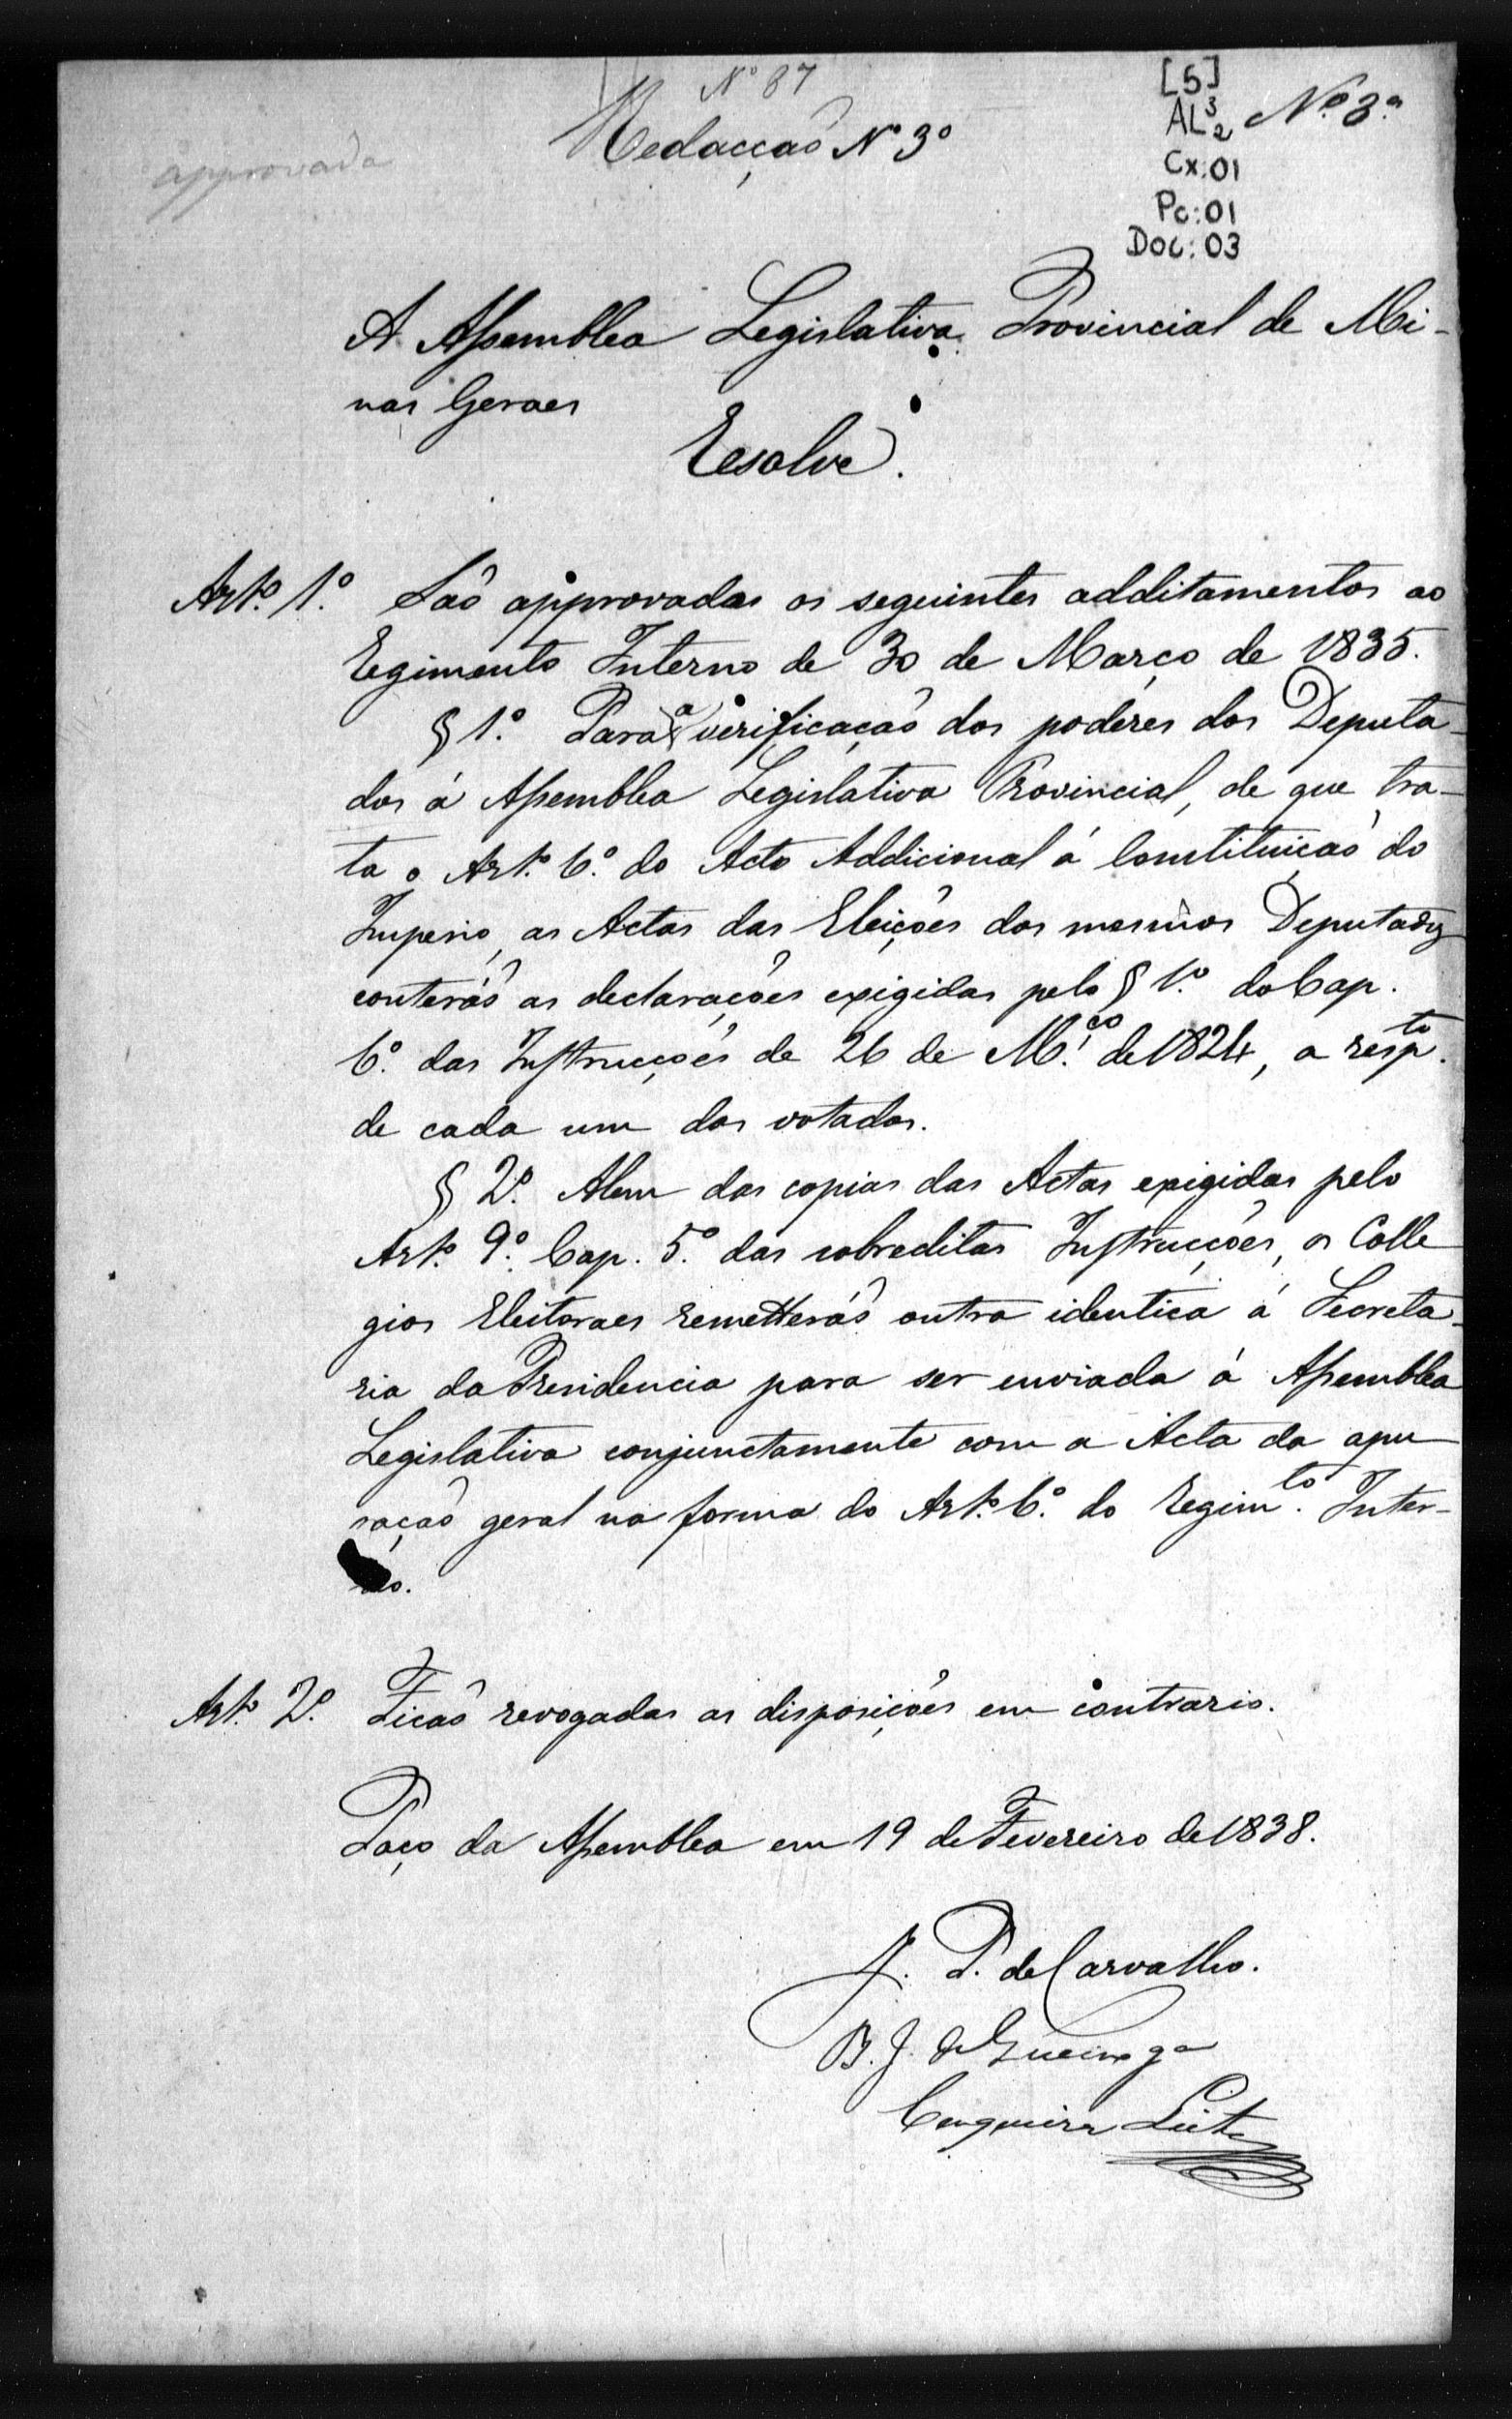 Nº 87
[5]
AL³2
Nº 3.º
Redacçaõ Nº 3º
approvada
Cx:01
Pc:01
Doc:03
A Assemblea Legislativa Provincial de Mi-
nas Geraes
Resolve.
Artº. 1º. Saõ approvadas os seguintes additamentos ao
Regimento Interno de 30 de Março de 1835.
§ 1º. Para a verificaçaõ dos poderes dos Deputa-
dos á Assemblea Legislativa Provincial, de que tra-
ta o Artº. 6º. do Acto Addicional á Constituiçaõ do
Imperio, as Actas das Eleições dos mesmos Deputados
conteráõ as declarações exigidas pelo § 1º. do Cap.
6º. das Instrucções de 26 de M.ço de 1824, a resp.to
de cada um dos votados.
§ 2º. Alem das copias das Actas exigidas pelo
Artº. 9º. Cap. 5º. das sobreditas Instrucções, os Colle
gios Eleitoraes remetteráõ outra identica á Secreta-
ria da Presidencia para ser enviada á Assemblea
Legislativa conjunctamente com a Acta da apu
raçaõ geral na forma do Artº. 6º. do Regim.to Inter-
no.
Artº. 2º. Ficaõ revogadas as disposições em contrario.
Paço da Assemblea em 19 de Fevereiro de 1838.
J. P. de Carvalho.
B. J. de
Cerqueira Leite